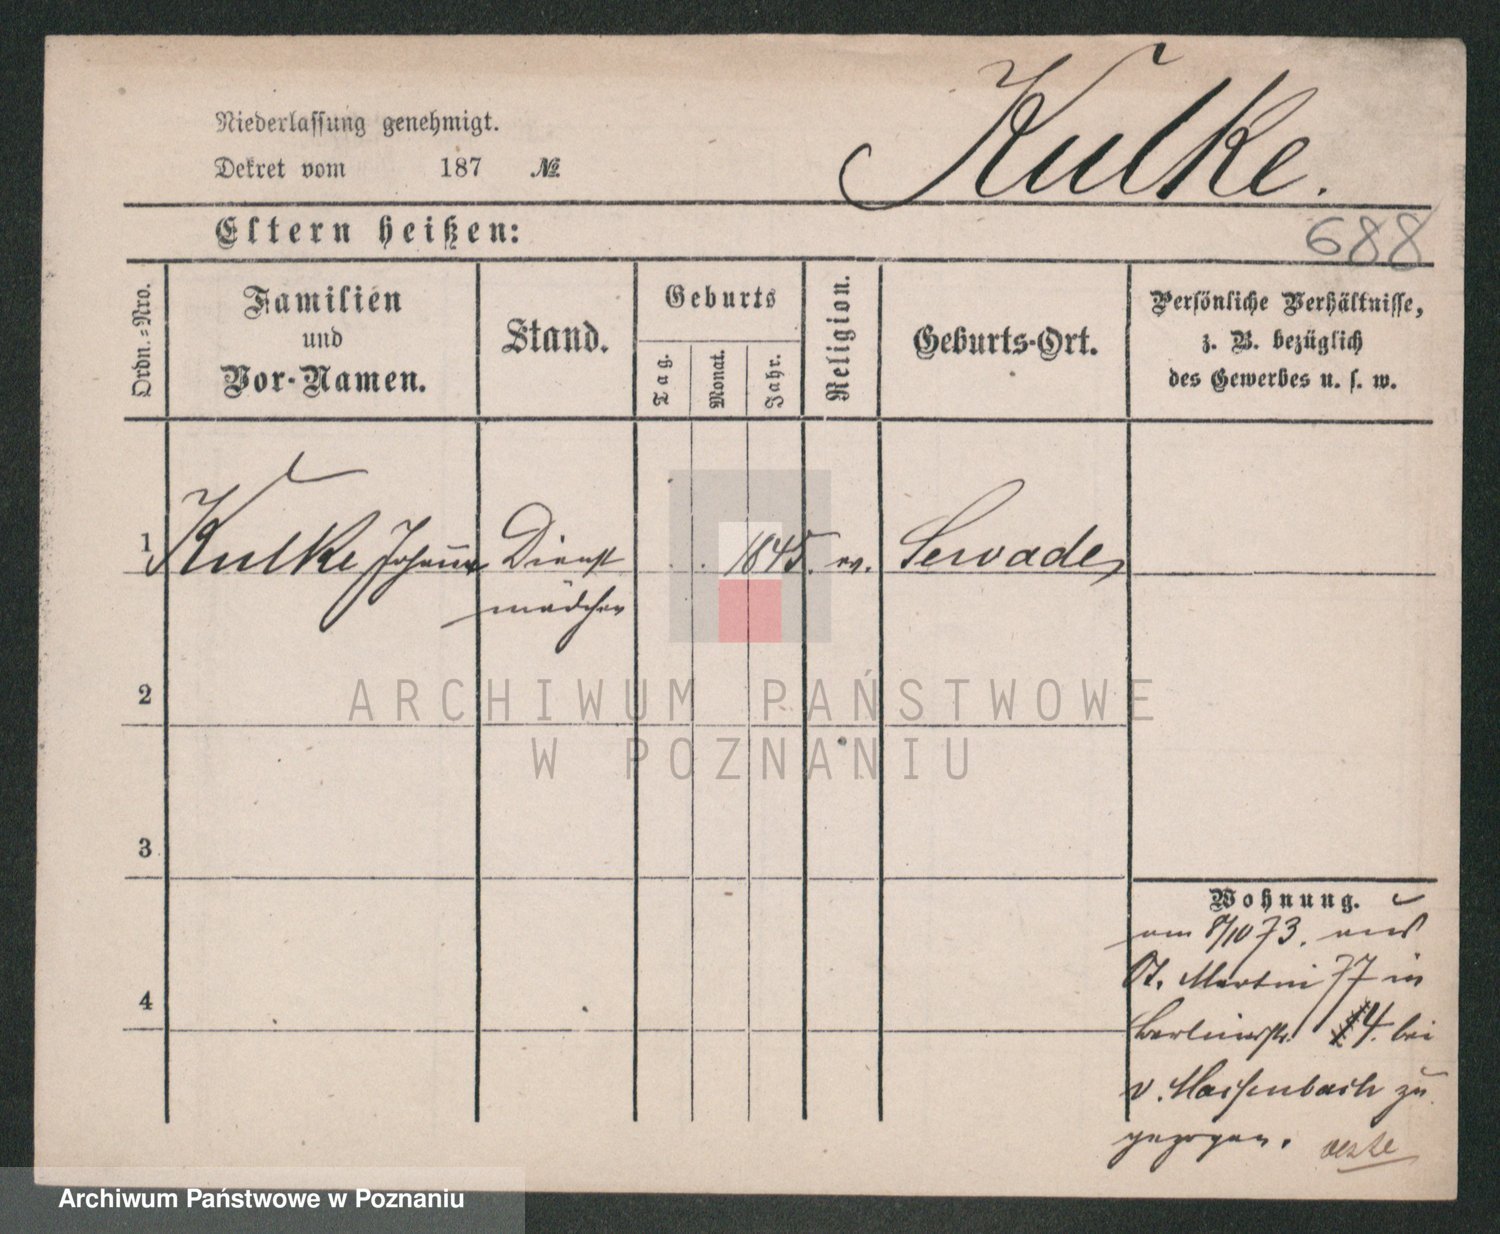 Kulke.
Niederlassung genehmigt.
Dekret vom 187 №
688
Eltern heißen:
Ordn.-Nro.
Familien
und
Vor-Namen.
Stand.
Geburts
Tag.
Monat.
Jahr.
Religion.
Geburts-Ort.
Persönliche Verhältnisse,
z. B. bezüglich
des Gewerbes u. s. w.
1 Kulke Dienst 1845. ev.
mädchen
2
ARCHIWUM PAŃSTWOWE
W POZNANIU
3
4
Wohnung.
am 8/10 73. aus
St. Martin 77 in
Berlinerstr. 14. bei
v. Massenbach zu
gezogen.
Archiwum Państwowe w Poznaniu